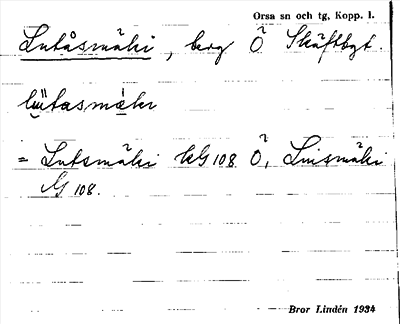 Orsa sn och tg, Kopp. l.
Lutåsmäki, berg Ö Skäftbgt.
lütasmäkı
= Lutsmäki kG 108 Ö, Luismäki
lG 108.
Bror Lindén 1934